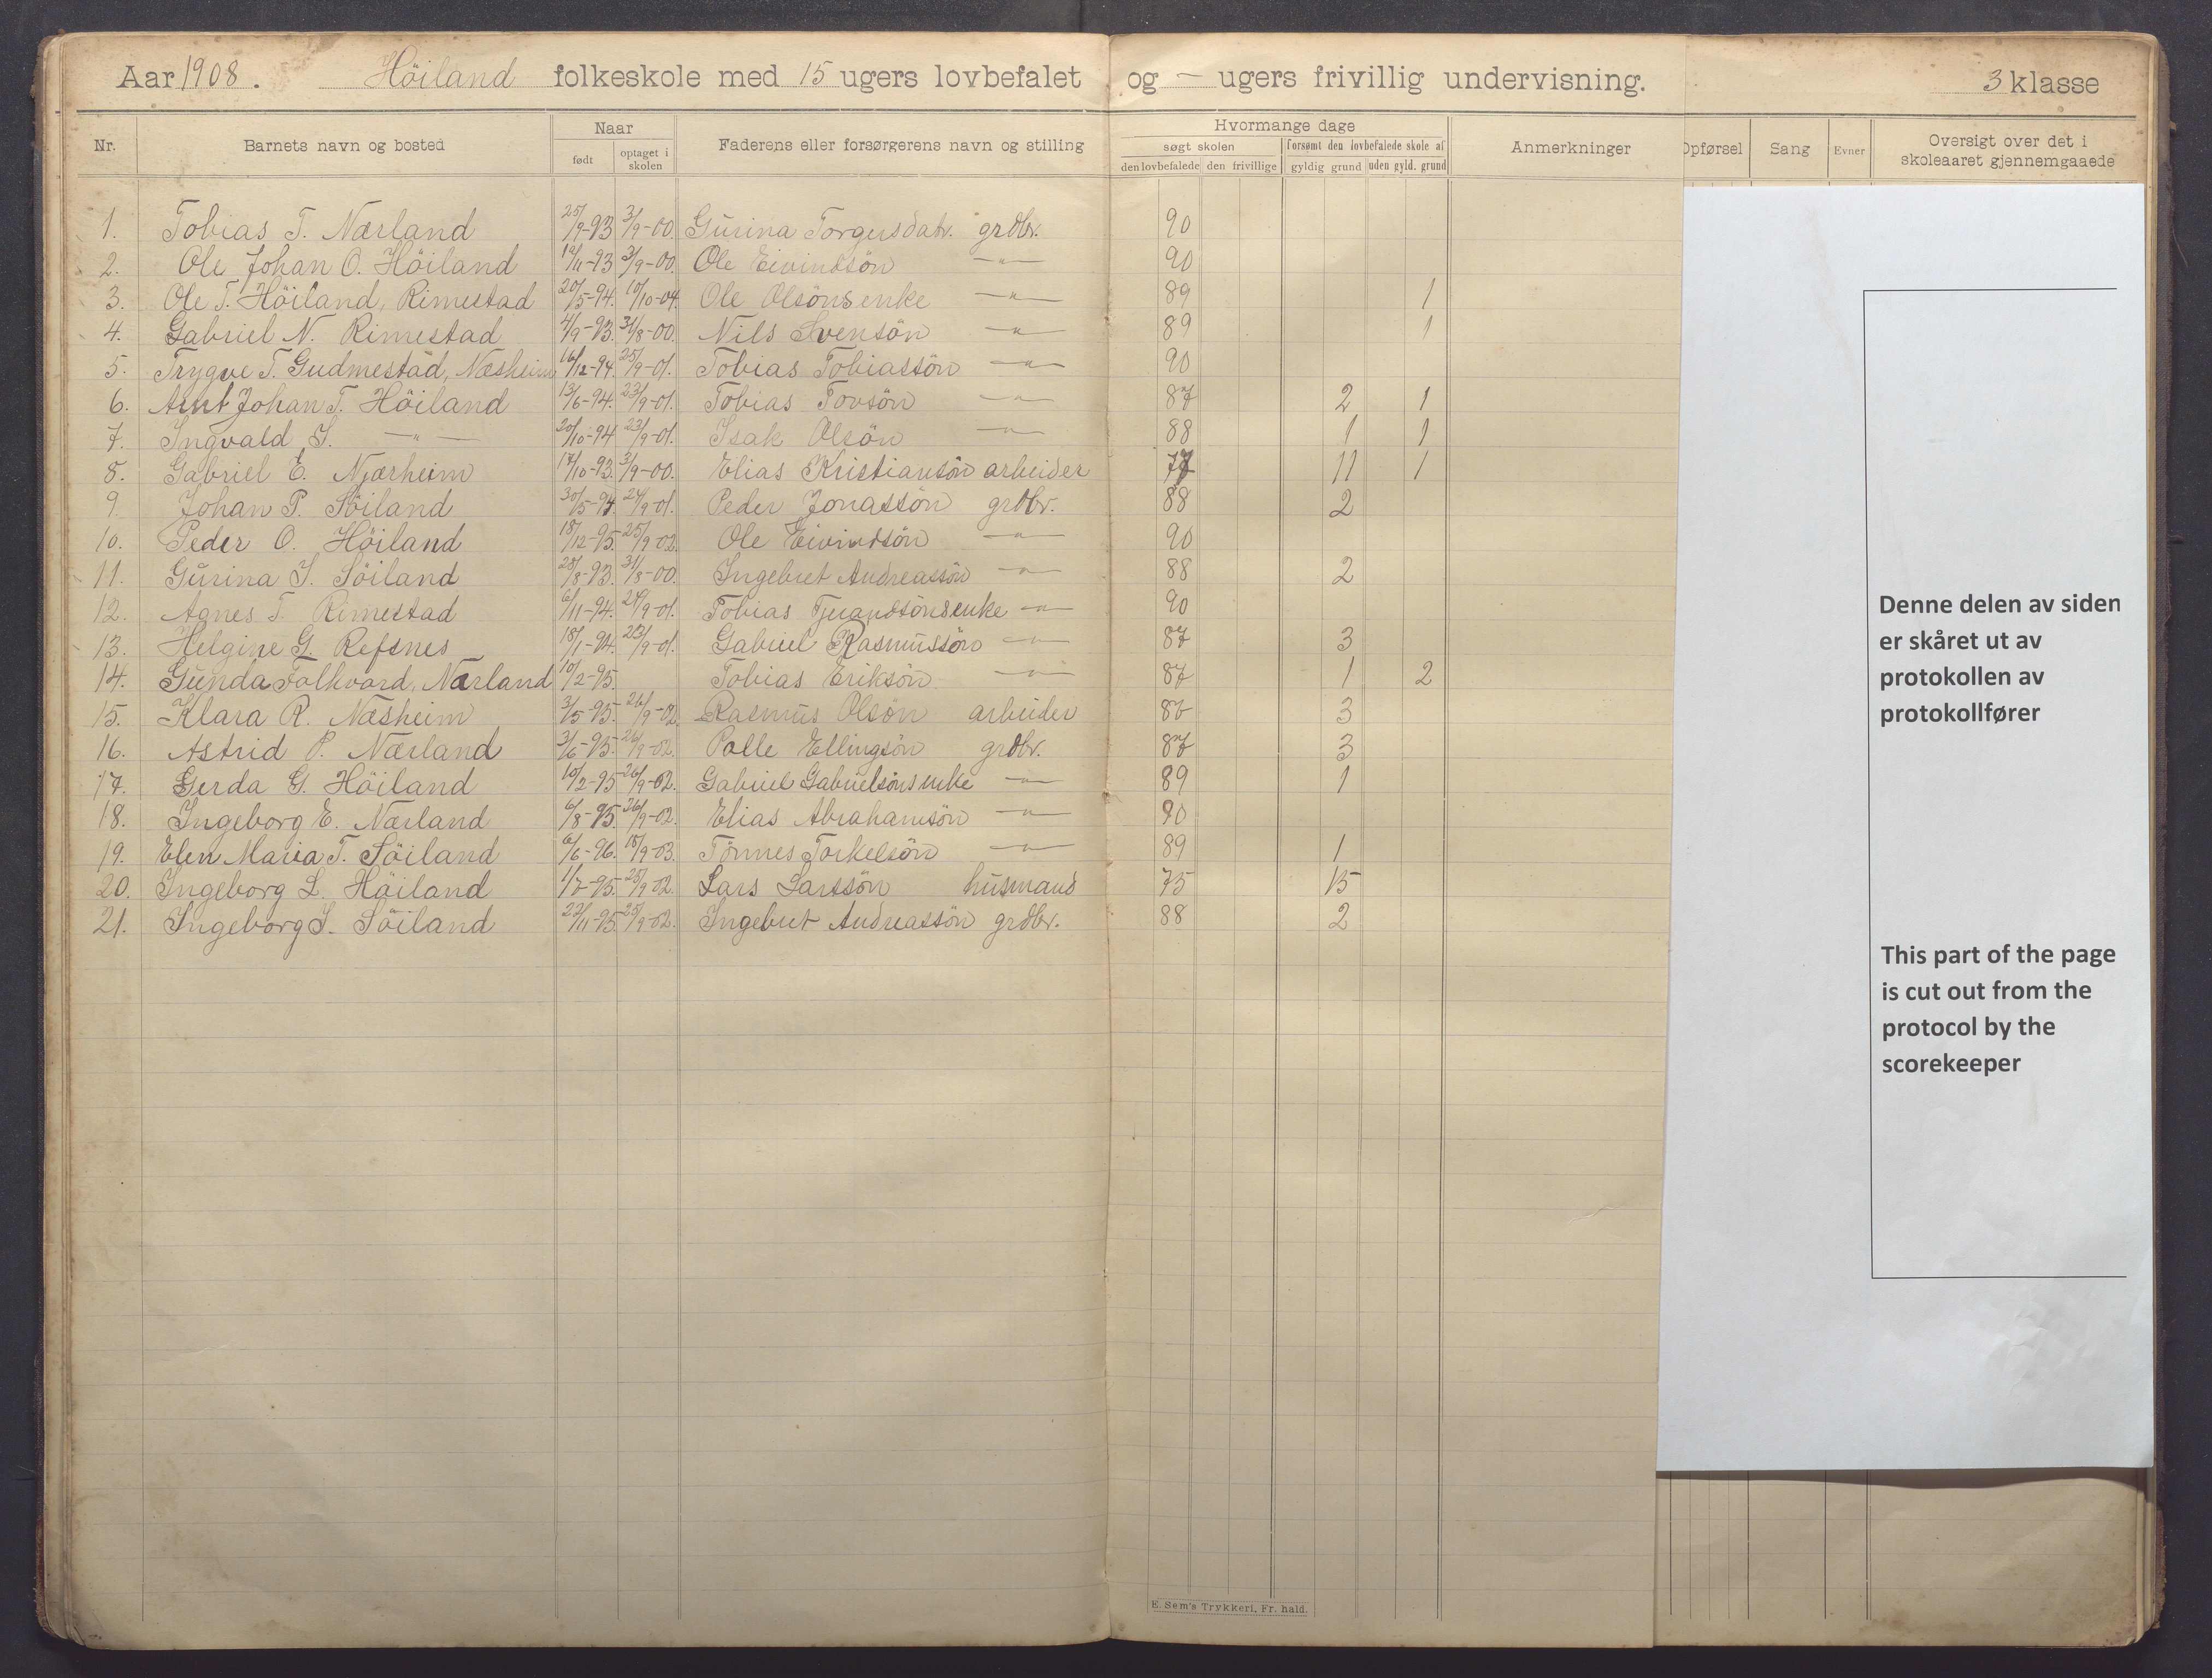 Aar 1908. Höiland folkeskole med 15 ugers lovbefalet og — ugers frivillig undervisning. 3 klasse
Nr. Barnets navn og bosted Naar født optaget i skolen Faderens eller forsørgerens navn og stilling Hvormange dage søgt skolen den lovbefalede den frivillige forsømt den lovbefalede skole af gyldig grund uden gyld. grund Anmerkninger Opførsel Sang Evner Oversigt over det i skoleaaret gjennemgaaede
1. Tobias T. Nærland 25/9-93 3/9-00. Gurina Torgersdatr. grdbr. 90
2. Ole Johan O. Höiland 19/11-93 3/9-00. Ole Eivindsön —"— 90
3. Ole T. Höiland, Rimestad 20/5-94. 10/10-04. Ole Olsöns enke —"— 89 1
4. Gabriel N. Rimestad 4/9-93. 31/8-00. Nils Svensön —"— 89 1
5. Trygve T. Gudmestad, Næsheim 16/12-94. 25/9-01. Tobias Tobiassön —"— 90
6. Arnt Johan T. Höiland 13/6-94. 23/9-01. Tobias Tovsön —"— 87 2 1
7. Ingvald I. —"— 20/10-94 23/9-01. Isak Olsön —"— 88 1 1
8. Gabriel E. Njærheim 17/10-93. 3/9-00. Elias Kristiansön arbeider 77 11 1
9. Johan P. Söiland 30/5-94. 24/9-01. Peder Jonassön grdbr. 88 2
10. Peder O. Höiland 18/12-95. 25/9-02. Ole Eivindsön —"— 90
11. Gurina I. Söiland 28/8-93. 31/8-00. Ingebret Andreassön —"— 88 2
12. Agnes T. Rimestad 6/11-94. 24/9-01. Tobias Tjerandsöns enke —"— 90
13. Helgine G. Refsnes 18/1-94. 23/9-01. Gabriel Rasmussön —"— 87 3
14. Gunda Folkvord, Nærland 10/2-95. Tobias Eriksön —"— 87 1 2
15. Klara R. Næsheim 3/5-95. 26/9-02. Rasmus Olsön arbeider 86 3
16. Astrid P. Nærland 3/6-95. 26/9-02. Palle Ellingsön grdbr. 87 3
17. Gerda G. Höiland 10/2-95 26/9-02. Gabriel Gabrielsöns enke —"— 89 1
18. Ingeborg E. Nærland 6/8-95. 26/9-02. Elias Abrahamsön —"— 90
19. Elen Maria T. Söiland 6/6-96. 18/9-03. Tönnes Torkelsön —"— 89 1
20. Ingeborg L. Höiland 1/7-95. 25/9-02. Lars Larssön husmand 75 15
21. Ingeborg I. Söiland 23/11-95 25/9-02. Ingebret Andreassön grdbr. 88 2
Denne delen av siden
er skåret ut av
protokollen av
protokollfører
This part of the page
is cut out from the
protocol by the
scorekeeper
E. Sem's Trykkeri, Fr. hald.